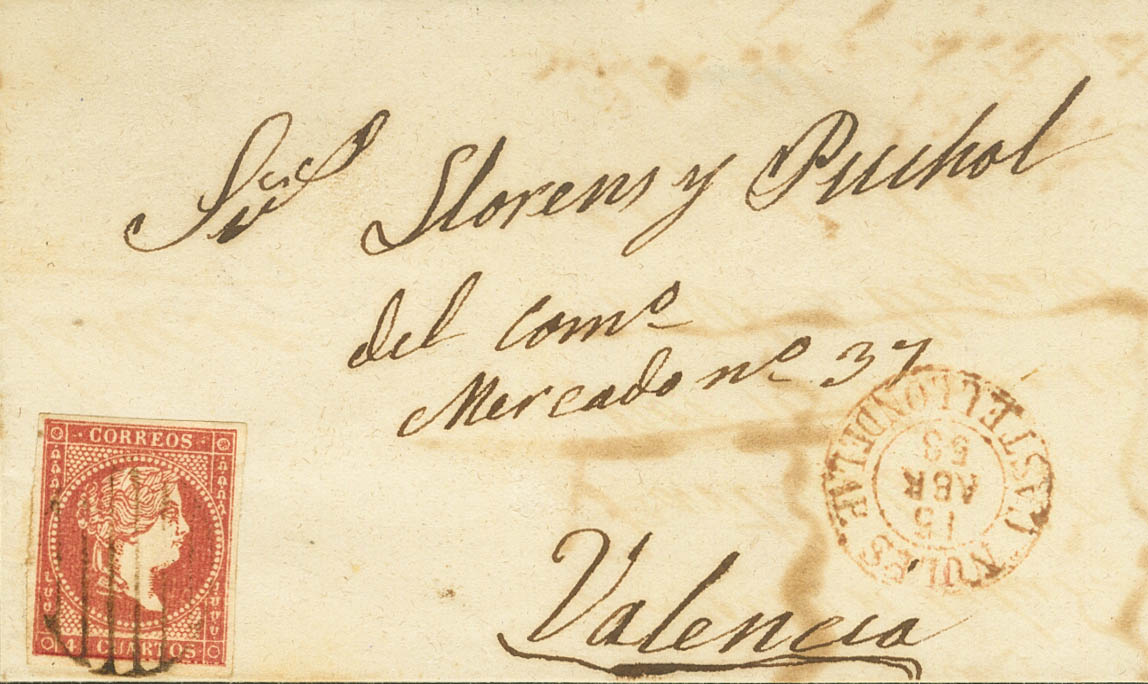 Sres Llorens y Puchol
del Comº
Mercado nº 37
Valencia
CORREOS
4 CUARTOS
NULES
15
ABR
58
CASTELLON DE LA P.